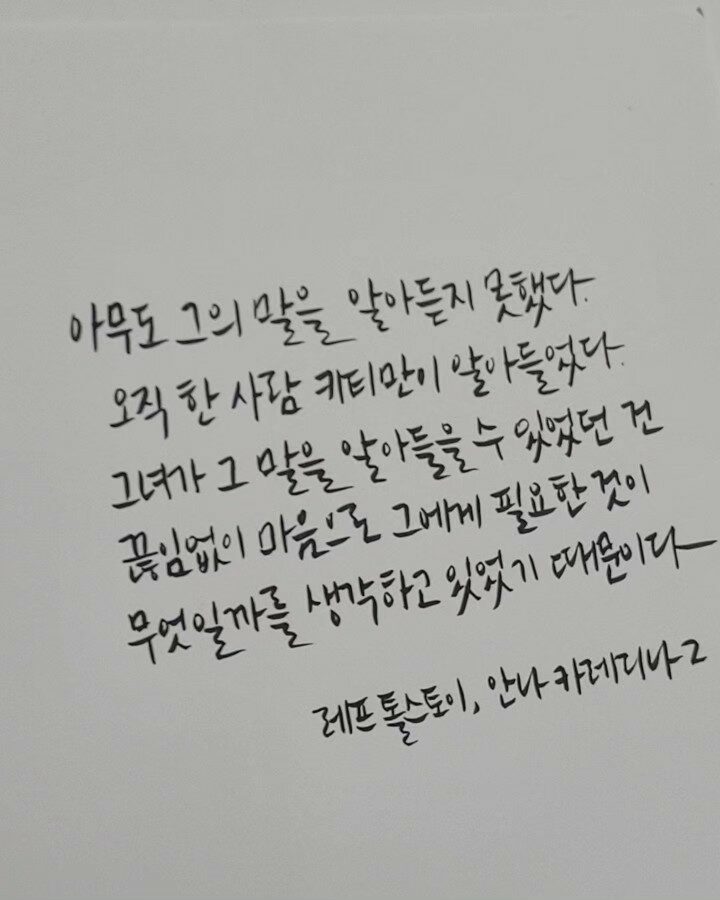 아무도 그의 말을 알아듣지 못했다.
오직 한 사람 키티만이 알아들었다.
그녀가 그 말을 알아들을 수 있었던 건
끊임없이 마음으로 그에게 필요한 것이
무엇일까를 생각하고 있었기 때문이다
레프 톨스토이, 안나 카레니나 2